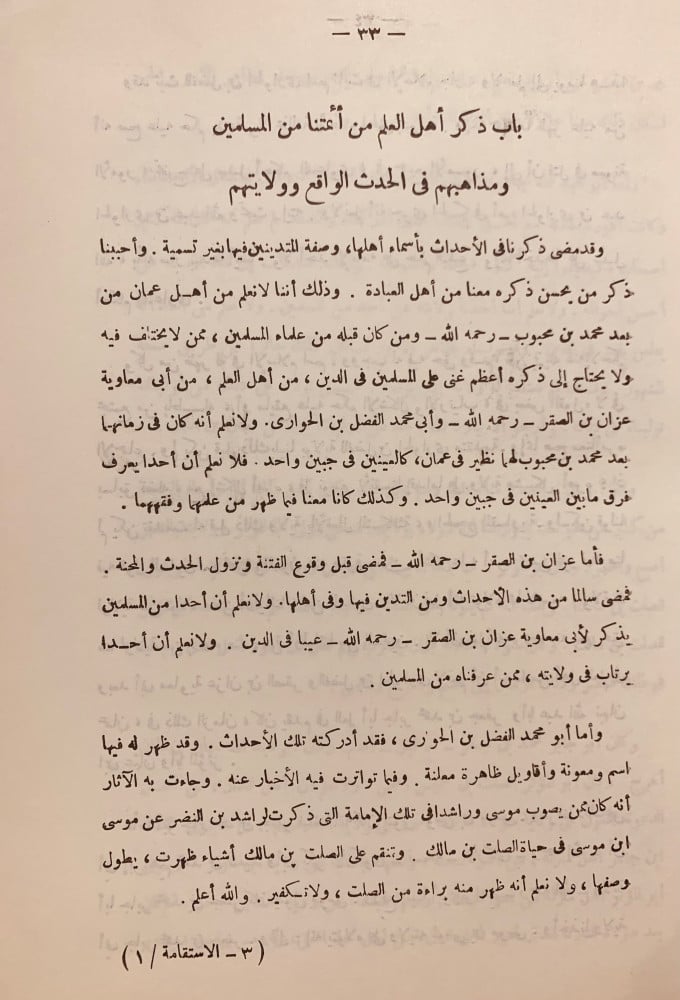 — ٣٣ —
باب ذكر أهل العلم من أئمتنا من المسلمين
ومذاهبهم فى الحدث الواقع وولايتهم
وقد مضى ذكرنا فى الأحداث بأسماء أهلها، وصفة المتدينين فيها بغير تسمية . وأحببنا
ذكر من يحسن ذكره معنا من أهل العبادة . وذلك أننا لانعلم من أهل عمان من
بعد محمد بن محبوب – رحمه الله – ومن كان قبله من علماء المسلمين ، ممن لايختلف فيه
ولا يحتاج إلى ذكره أعظم غنى على المسلمين فى الدين ، من أهل العلم ، من أبى معاوية
عزان بن الصقر – رحمه الله – وأبى محمد الفضل بن الحوارى. ولانعلم أنه كان فى زمانهما
بعد محمد بن محبوب لهما نظير فى عمان، كالعينين فى جبين واحد . فلا نعلم أن أحدا يعرف
فرق مابين العينين فى جبين واحد . وكذلك كانا معنا فيما ظهر من علمهما وفقههما .
فأما عزان بن الصقر – رحمه الله – فمضى قبل وقوع الفتنة ونزول الحدث والمحنة .
فمضى سالما من هذه الأحداث ومن التدين فيها وفى أهلها. ولانعلم أن أحدا من المسلمين
يذكر لأبى معاوية عزان بن الصقر – رحمه الله – عيبا فى الدين . ولانعلم أن أحدا
يرتاب فى ولايته ، ممن عرفناه من المسلمين .
وأما أبو محمد الفضل بن الحوارى ، فقد أدركته تلك الأحداث . وقد ظهر له فيها
اسم ومعونة وأقاويل ظاهرة معلنة . وفيما تواترت فيه الأخبار عنه . وجاءت به الآثار
أنه كان ممن يصوب موسى وراشدا فى تلك الإمامة التى ذكرت لراشد بن النضر عن موسى
ابن موسى فى حياة الصلت بن مالك . وتنقم على الصلت بن مالك أشياء ظهرت ، يطول
وصفها ، ولا نعلم أنه ظهر منه براءة من الصلت ، ولاتكفير . والله أعلم .
( ٣ – الاستقامة / ١ )